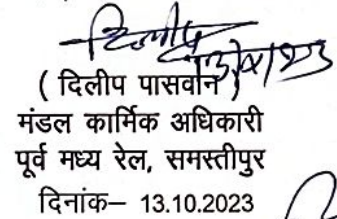 ( दिलीप पासवान )
मंडल कार्मिक अधिकारी
पूर्व मध्य रेल, समस्तीपुर
दिनांक– 13.10.2023